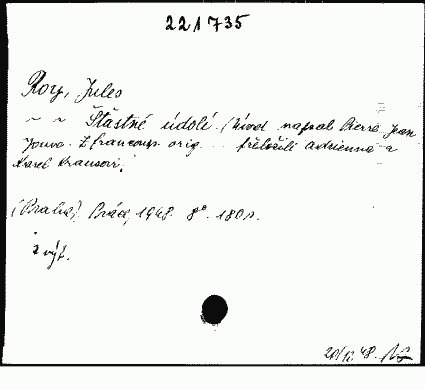 221735
Roy, Jules
~ ~ Šťastné údolí. (Úvod napsal Pierre Jean
Jouve. Z francouz. orig. přeložili Adrienna a
Karel Krausovi.
(Praha). Práce, 1948. 8°. 180 s.
2 výt.
48.